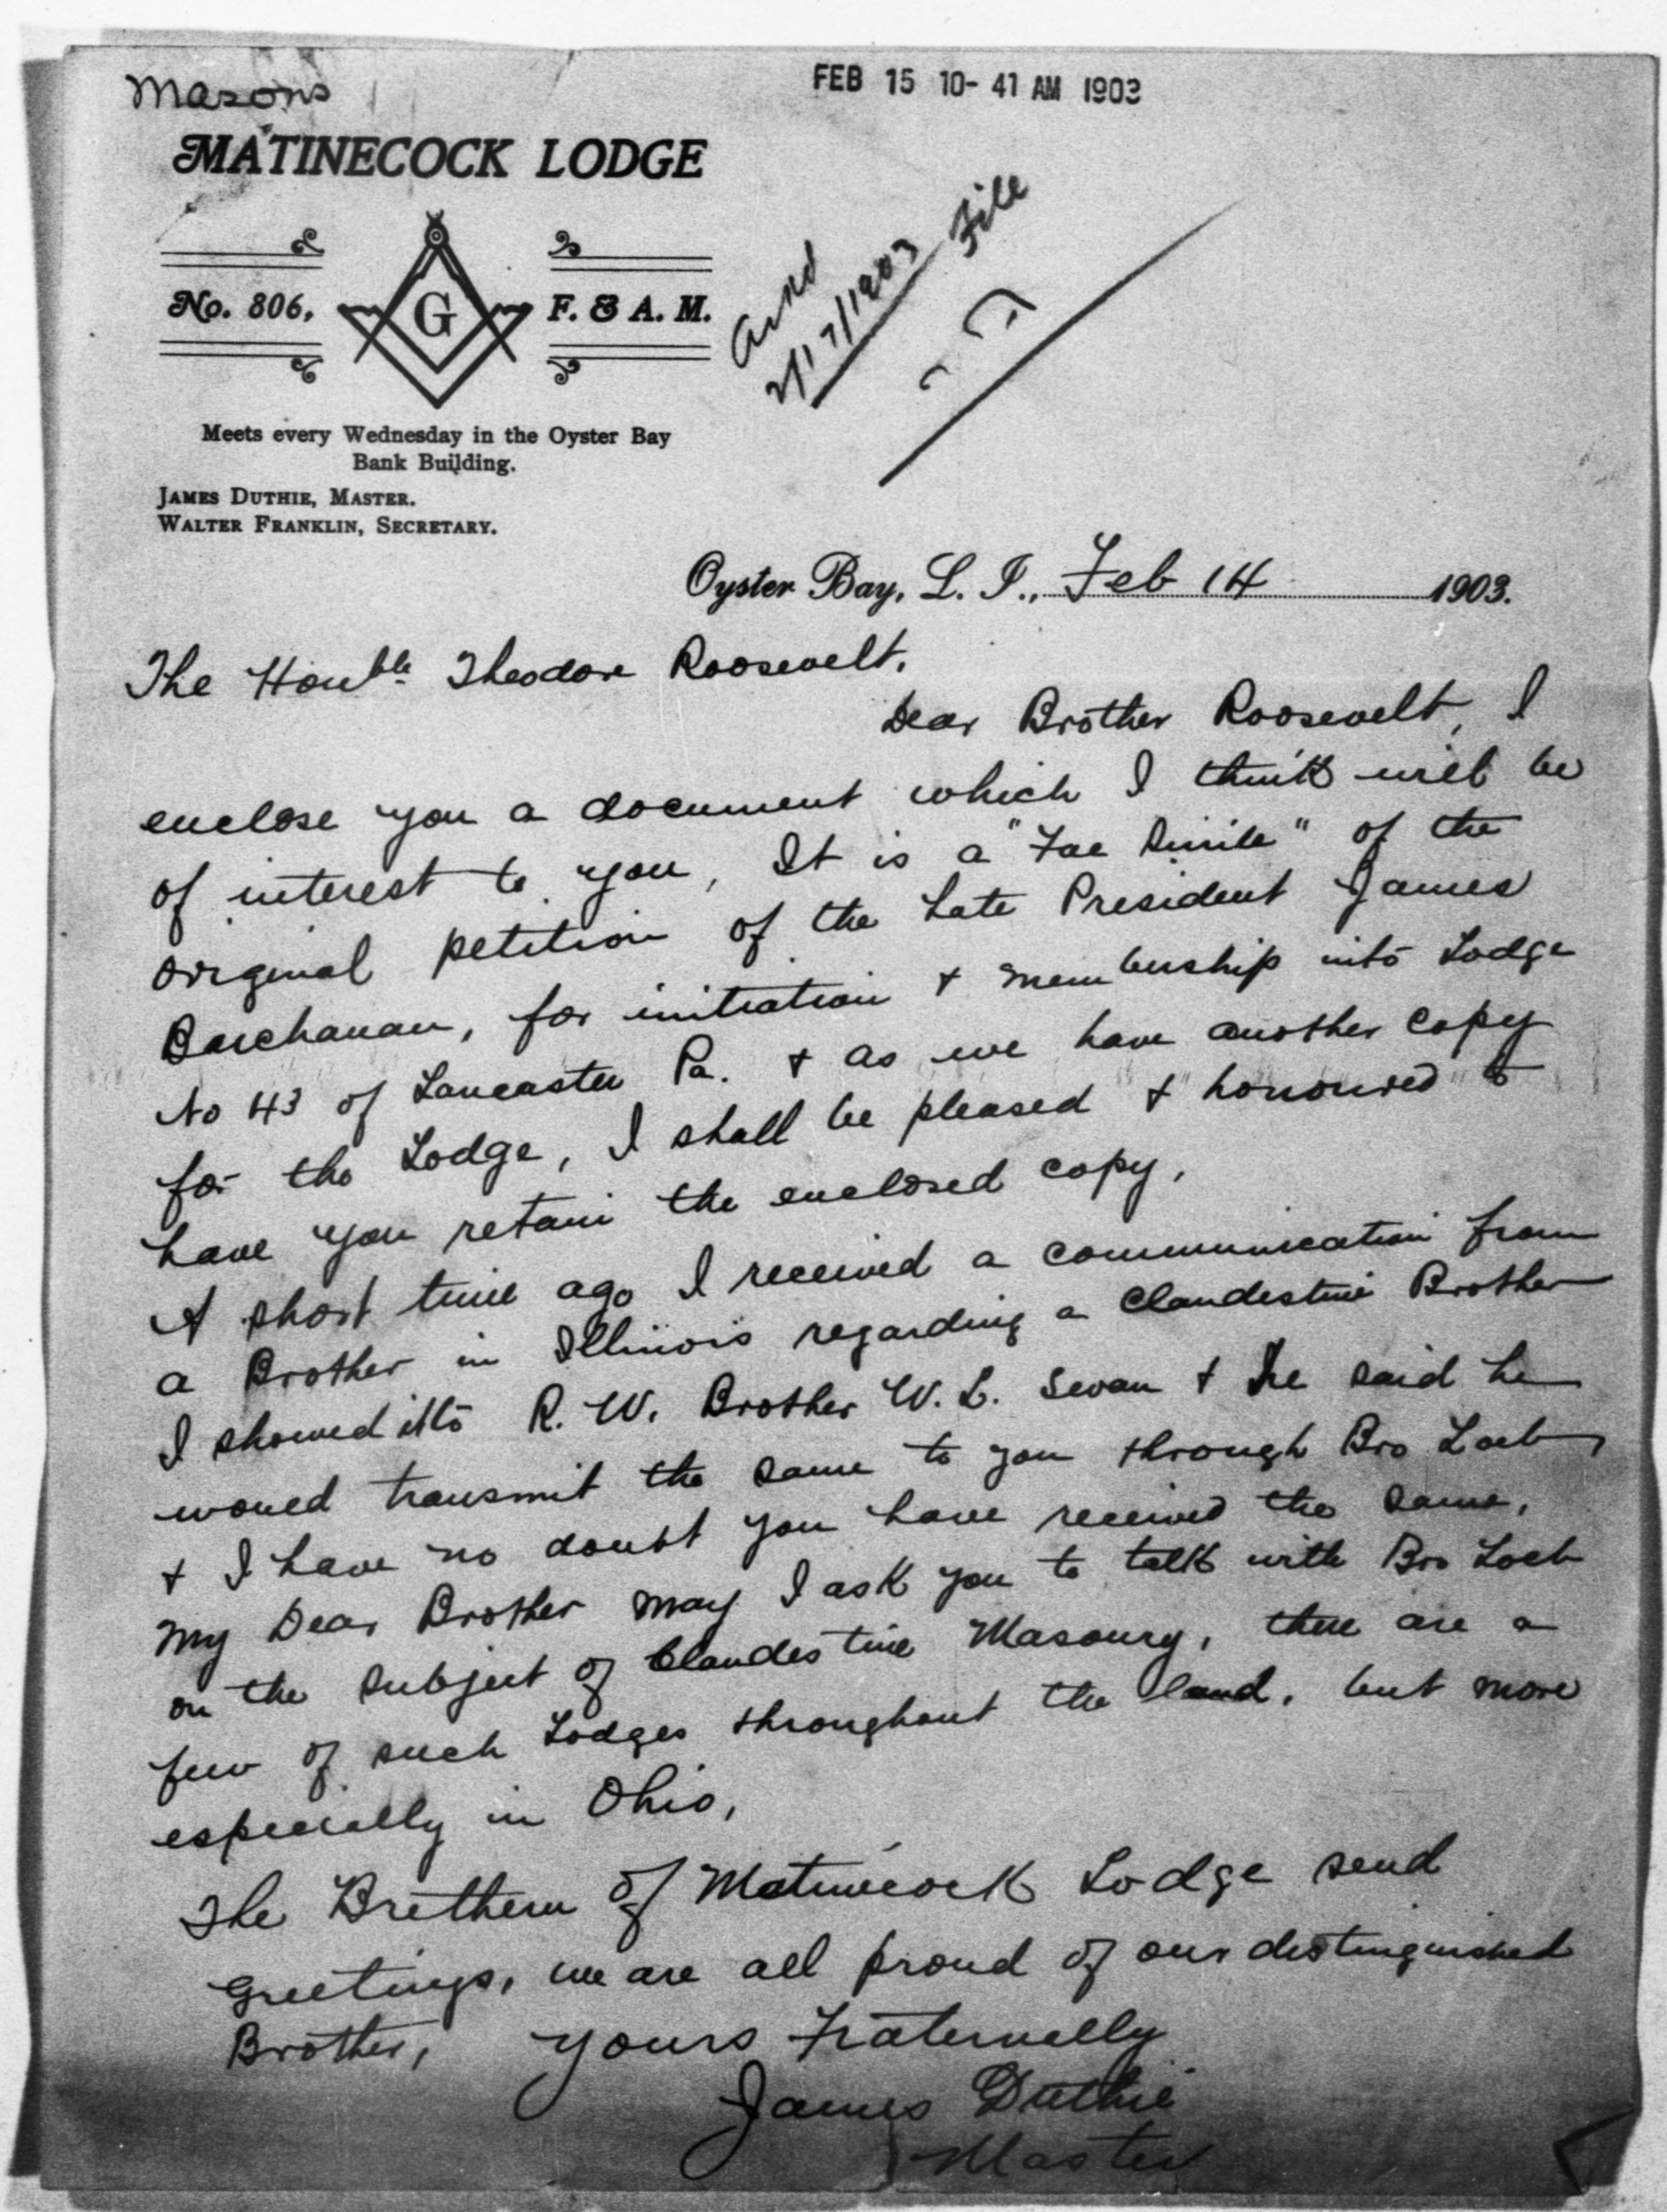 Masons
FEB 15 10-41 AM 1903
MATINECOCK LODGE
No. 806,
G
F. & A. M.
Ackd
2/17/1903
File
Meets every Wednesday in the Oyster Bay
Bank Building.
JAMES DUTHIE, MASTER.
WALTER FRANKLIN, SECRETARY.
Oyster Bay, L. I., Feb 14 1903.
The Honble Theodore Roosevelt.
Dear Brother Roosevelt, I
enclose you a document which I think will be
of interest to you, It is a "Fac Simile" of the
original petition of the Late President James
Buchanan, for initiation & membership into Lodge
No 43 of Lancaster Pa. & as we have another copy
for the Lodge, I shall be pleased & honoured to
have you retain the enclosed copy,
A short time ago I received a communication from
a Brother in Illinois regarding a Clandestine Brother
I showed it to R. W. Brother W. L. Swan & he said he
would transmit the same to you through Bro Loeb
& I have no doubt you have received the same,
My Dear Brother may I ask you to talk with Bro Loeb
on the subject of Clandestine Masonry, there are a
few of such Lodges throughout the land, but more
especially in Ohio,
The Brethern of Matinecock Lodge send
Greetings, we are all proud of our distinguished
Brother, Yours Fraternally
James Duthie
Master